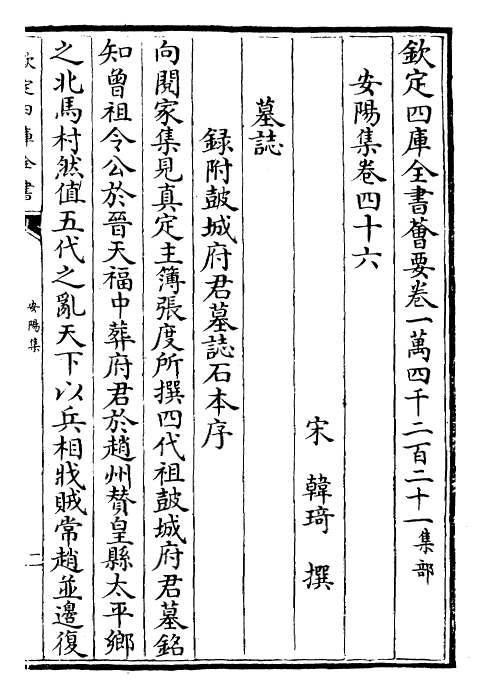 欽定四庫全書薈要卷一萬四千二百二十一集部
安陽集卷四十六
宋 韓琦 撰
墓誌
録附皷城府君墓誌石本序
向閱家集見真定主簿張度所撰四代祖皷城府君墓銘
知曾祖令公於晉天福中葬府君於趙州贊皇縣太平鄉
之北馬村然值五代之亂天下以兵相戕賊常趙並邊復
欽定四庫全書
安陽集
二